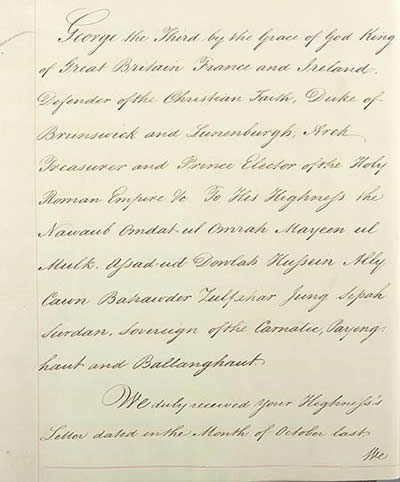 George the Third by the Grace of God King
of Great Britain France and Ireland.
Defender of the Christian Faith, Duke of
Brunswick and Lunenburgh, Arch
Treasurer and Prince Elector of the Holy
Roman Empire &c To His Highness the
Nawaub Omdat-ul Omrah Mayeen ul
Mulk. Assad-ud Dowlah Hussein Ally
Cawn Bahawder Zulfshar Jung Sepah
Surdan. Sovereign of the Carnatic, Paying-
haut and Ballanghaut
We duly received your Highness's
Letter dated in the Month of October last
We